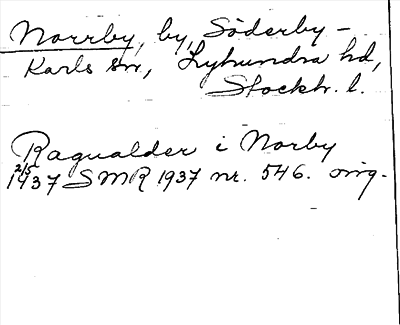 Norrby, by, Söderby-
Karls sn, Lyhundra hd,
Stockh. l.
Ragualder i Norby
2/5
1437 SMR 1937 nr. 546. orig.